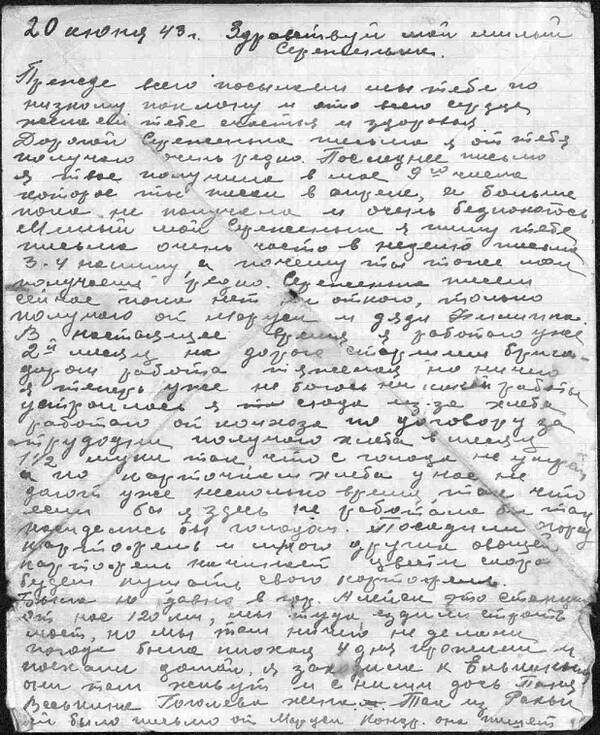 20 июня 43 г. Здравствуй мой милый
Сереженька.
Прежде всего посылаем мы тебе по
низкому поклону и ото всего сердца
желаем тебе счастья и здоровья
Дорогой Сереженька письма я от тебя
получаю очень редко. Последнее письмо
я твое получила в мае 9го числа
которое ты писал в апреле, и больше
пока не получала и очень беспокоюсь.
Милый мой Сереженька я пишу тебе
письма очень часто в неделю письма
3-4 напишу, а почему ты тоже мои
получаешь редко. Сереженька писем
сейчас пока нет ни от кого, только
получаю от Маруси и дяди
В настоящее время я работаю уже
2й месяц на дороге старшим брига-
диром работа тяжелая но ничего
я теперь уже не боюсь никакой работы
устроилась я сюда из-за хлеба
работаю от колхоза по договору за
трудодни получаю хлеба в месяц
1 1/2 муки так, что с голода не умрем
а по карточкам хлеба у нас не
дают уже несколько время, так что
если бы я здесь не работала бы так
насиделись бы голодом. Посадили огород
картофель и много других овощей
картофель начинает цвести скоро
будем кушать свого картофеля.
Была не давно в гор. Алейск это станция
от нас 120 км, мы туда ездили строить
мост, но мы там ничего не делали
погода была плохая 4 дня прожили и
поехали домой, я заходила к
они там живут и с ними дочь Паня
Гоголева жена. Так из
ей было письмо от Маруси Кондр. она пишет